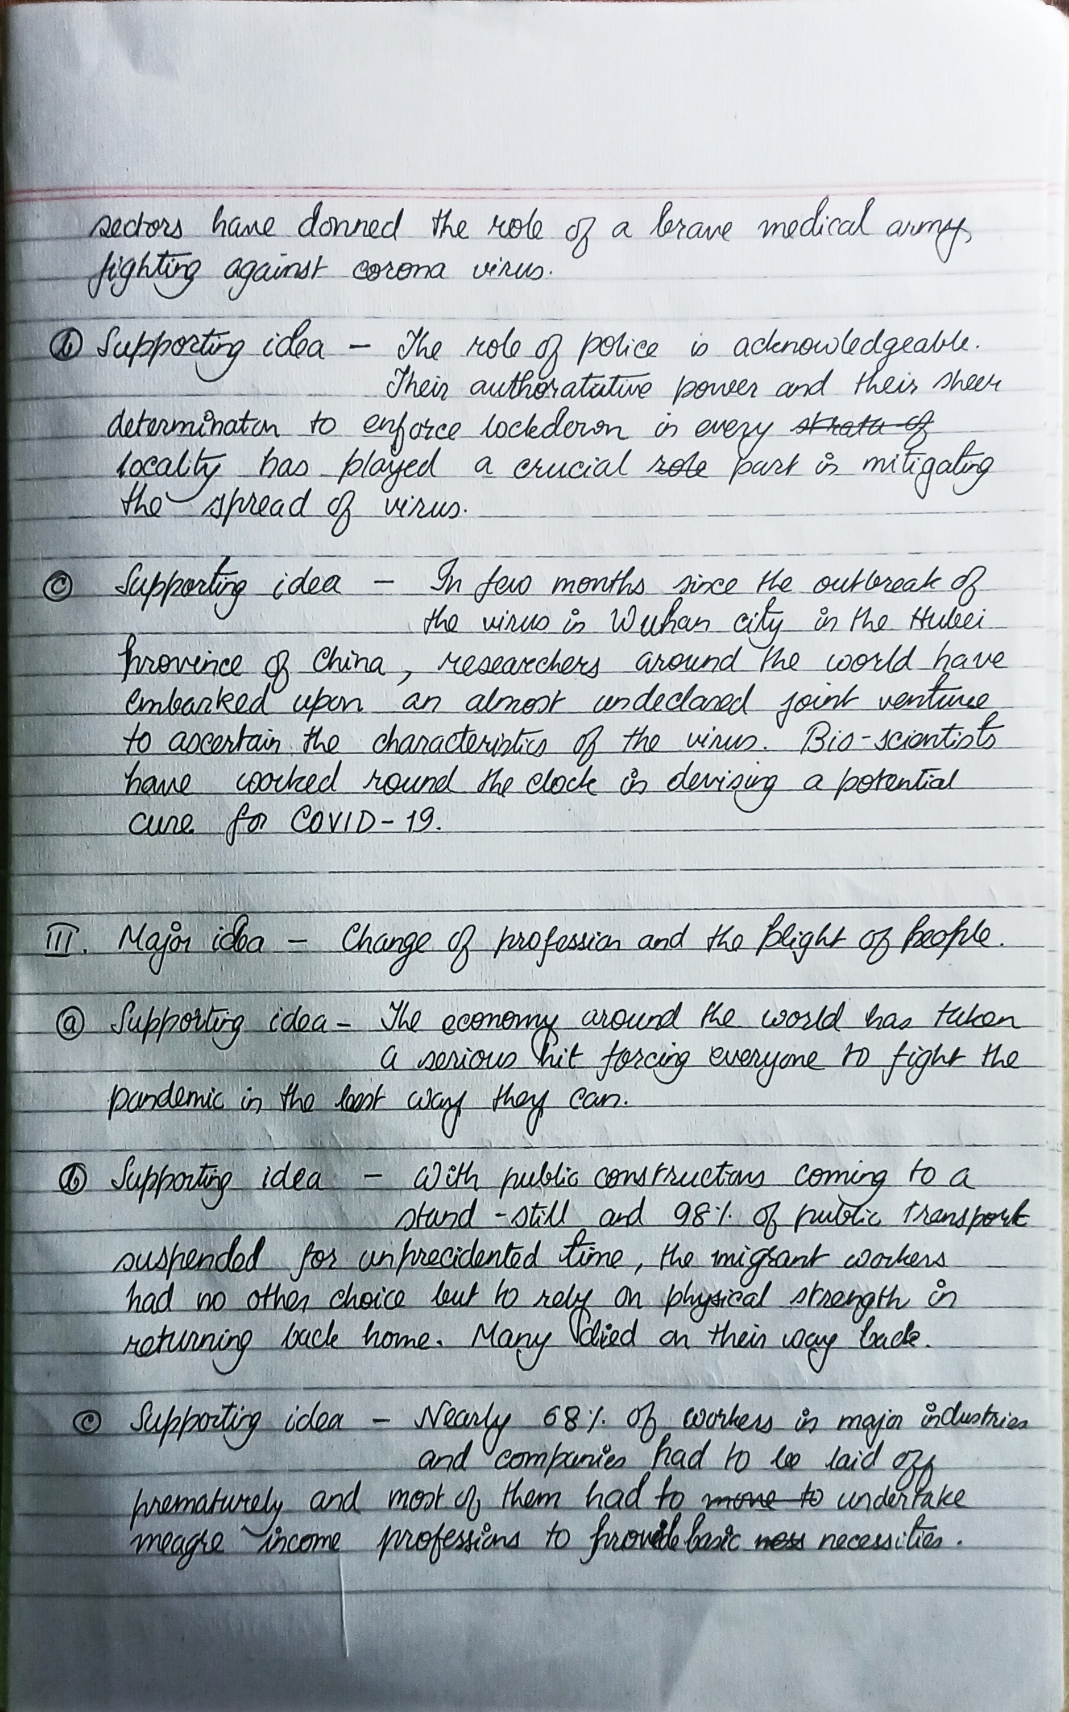 sectors have donned the role of a brave medical army,
fighting against corona virus.
ⓑ Supporting idea - The role of police is acknowledgeable.
Their authoratative power and their sheer
determination to enforce lockdown in every strata of
locality has played a crucial role part in mitigating
the spread of virus.
ⓒ Supporting idea - In few months since the outbreak of
the virus in Wuhan city in the Hubei
province of China, researchers around the world have
embarked upon an almost undeclared joint venture
to ascertain the characteristics of the virus. Bio-scientists
have worked round the clock in devising a potential
cure for COVID-19.
III. Major idea - Change of profession and the plight of people.
ⓐ Supporting idea - The economy around the world has taken
a serious hit forcing everyone to fight the
pandemic in the best way they can.
ⓑ Supporting idea - With public constructions coming to a
stand-still and 98% of public transport
suspended for unprecidented time, the migrant workers
had no other choice but to rely on physical strength in
returning back home. Many died on their way back.
ⓒ Supporting idea - Nearly 68% of workers in major industries
and companies had to be laid off
prematurely and most of them had to move to undertake
meagre income professions to provide basic ness necessities.